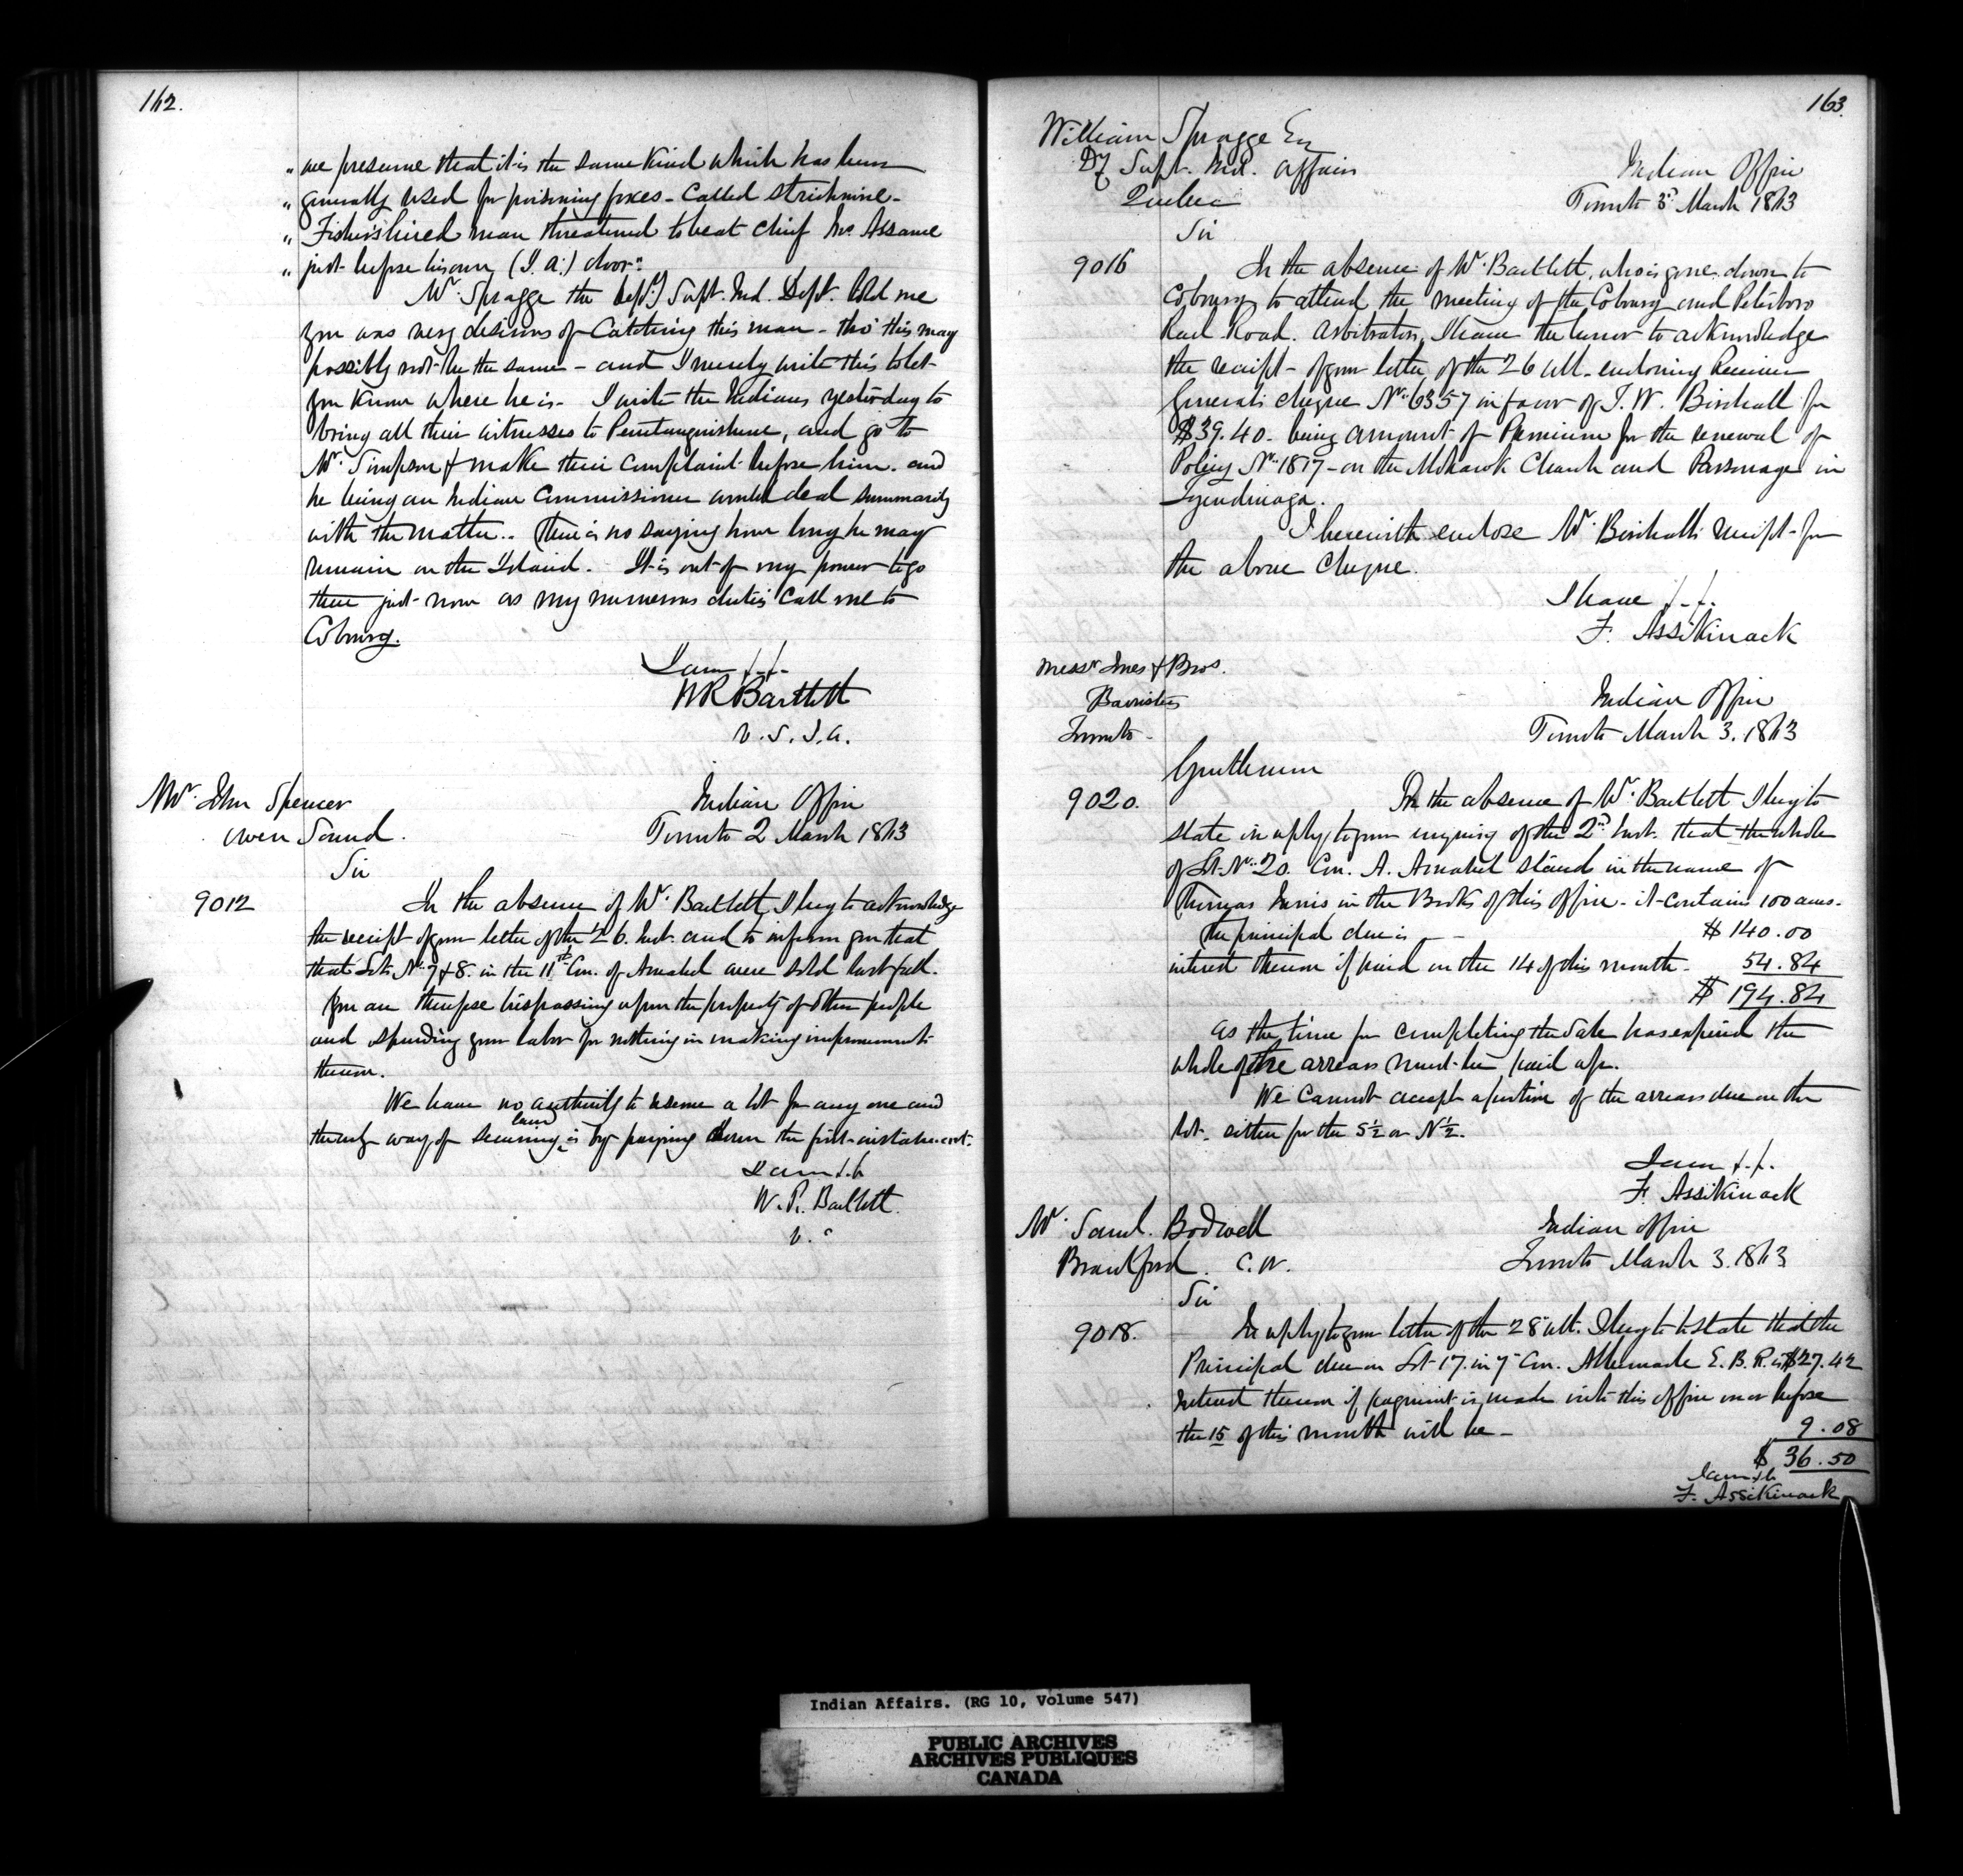 162.
" we presume that it is the same kind which has been
" generally used for poisoning foxes - called strichnine -
" Fisher's hired man threatened to beat chief Mc Assame
" just before his own (I. a.) door."
Mr. Spragge the Depy Supt. Ind. Dept. told me
you was very desirous of Catching this man - tho' this may
possibly not be the same - and I merely write this to let
you know where he is - I write the Indians yesterday to
bring all their witnesses to Penetanguishene, and go to
Mr. Simpson & make their complaint before him. and
he being an Indian Commissioner would deal summarily
with the matter.. There is no saying how long he may
remain on the Island. It is out of my power to go
there just now as my numerous duties call me to
Cobourg.
I am &.&.
WR Bartlett
V. S. I. A.
Mr. John Spencer
Owen Sound.
Indian Office
Toronto 2 March 1863
Sir
9012
In the absence of Mr. Bartlett, I beg to acknowledge
the receipt of your letter of the 26. Inst. and to inform you that
that Lots No. 7 & 8. in the 11th Con. of Amabel were sold last fall.
You are therefore trespassing upon the property of other people
and spending your labor for nothing in making improvements
thereon.
We have no authority to reserve a lot for any one and
the only way of securing land is by paying down the first instalment.
I am &.&
W. R. Bartlett.
V. "
163.
William Spragge Esq
Dy Supt. Ind. Affairs
Quebec
Indian Office
Toronto 3d March 1863
Sir
9016
In the absence of Mr. Bartlett, who is gone down to
Cobourg to attend the meeting of the Cobourg and Peterboro
Rail Road. Arbitrators, I have the honor to acknowledge
the receipt of your letter of the 26 ult. enclosing Receiver
Generals cheque No. 6357 in favor of T. W. Birchall for
$39.40. being amount of Premium for the renewal of
Policy No. 1817 - on the Mohawk Church and Parsonage in
Tyendinaga.
I herewith enclose Mr. Birchall's receipt for
the above Cheque.
I have &.&.
F. Assikinack
Messrs Jones & Bros.
Barristers
Toronto -
Indian Office
Toronto March 3. 1863
Gentlemen
9020.
In the absence of Mr. Bartlett I beg to
state in reply to your inquiry of the 2nd Inst. that the whole
of Lot No. 20. Con. A. Amabel stands in the name of
Thomas Innis in the Books of this office - it contains 100 acres.
The principal due is - - $ 140.00
interest thereon if paid on the 14 of this month - 54.84
$ 194.84
As the time for completing the Sale has expired the
whole of the arrears must be paid up.
We Cannot accept a portion of the arrears due on the
lot. either for the S½ or N½.
I am &.&.
F. Assikinack
Mr. Saml. Bodwell
Brantford. C.W.
Indian Office
Toronto March 3. 1863
Sir
9018.
In reply to your letter of the 28 ult. I beg to state that the
Principal due on Lot 17. in 7 Con. Albemarle E. B. R. is $27.42
Interest thereon if payment is made into this office on or before
the 15 of this month will be - 9.08
$ 36.50
I am &.&
F. Assikinack
Indian Affairs. (RG 10, Volume 547)
PUBLIC ARCHIVES
ARCHIVES PUBLIQUES
CANADA